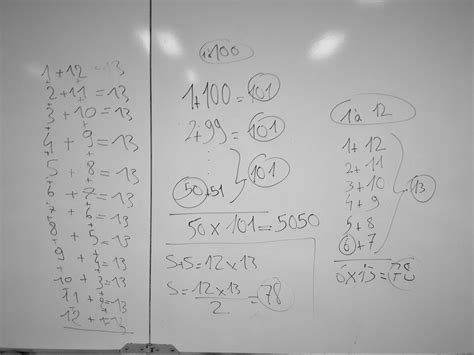 1 + 12 = 13
2 + 11 = 13
3 + 10 = 13
4 + 9 = 13
5 + 8 = 13
6 + 7 = 13
7 + 6 = 13
8 + 5 = 13
9 + 4 = 13
10 + 3 = 13
11 + 2 = 13
12 + 1 = 13
1à100
1+100 = 101
2+99 = 101
50+51
101
50 x 101 = 5050
S+S = 12 x 13
S = 12 x 13
2
= 78
1 à 12
1 + 12
2 + 11
3 + 10
4 + 9
5 + 8
6 + 7
13
6x13 = 78